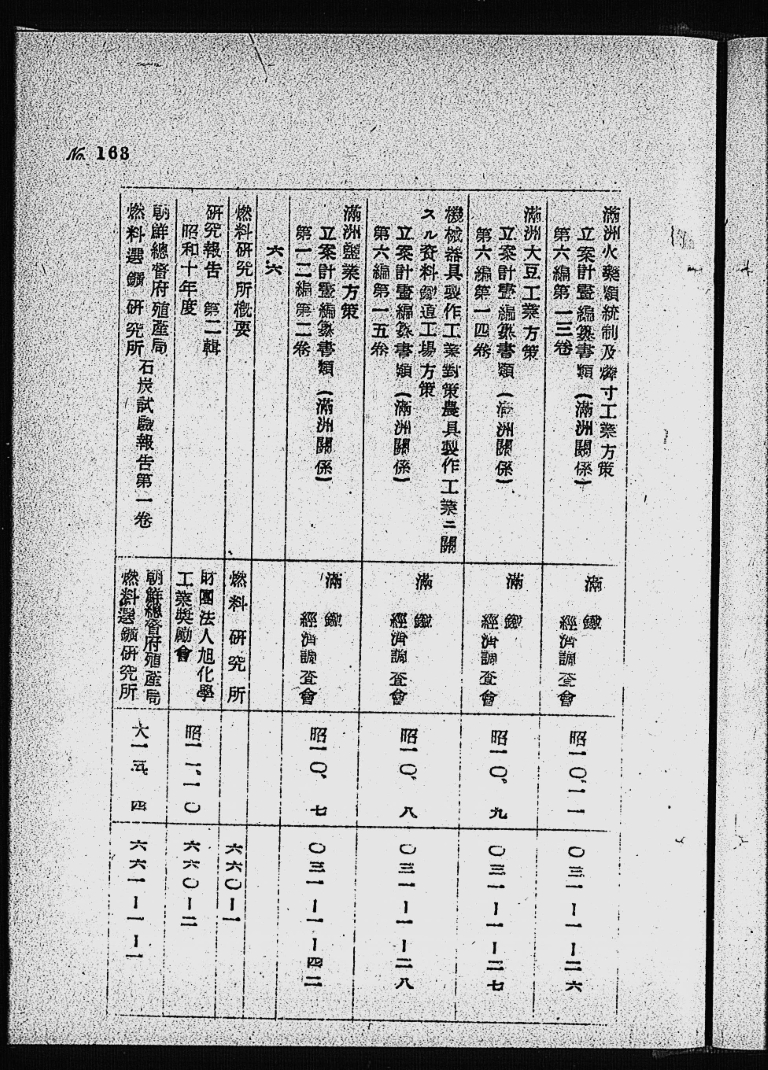 No. 163
滿洲火藥類統制及燐寸工業方策
立案計畫編纂書類（滿洲關係）
第六編第一三卷
滿鐵
經濟調査會
昭一〇、一一
〇三一ー一ー二六
滿洲大豆工業方策
立案計畫編纂書類（滿洲關係）
第六編第一四卷
滿鐵
經濟調査會
昭一〇、九
〇三一ー一ー二七
機械器具製作工業對策農具製作工業ニ關
スル資料鐵道工場方策
立案計畫編纂書類（滿洲關係）
第六編第一五卷
滿鐵
經濟調査會
昭一〇、八
〇三一ー一ー二八
滿洲鹽業方策
立案計畫編纂書類（滿洲關係）
第一二編第二卷
滿鐵
經濟調査會
昭一〇、七
〇三一ー一ー四二
六六
燃料研究所概要
燃料研究所
六六〇ー一
研究報告 第二輯
昭和十年度
財團法人旭化學
工業奬勵會
昭一一、一〇
六六〇ー二
朝鮮總督府殖産局
燃料選鑛研究所
石炭試驗報告第一卷
朝鮮總督府殖産局
燃料選鑛研究所
大一五、四
六六一ー一ー一